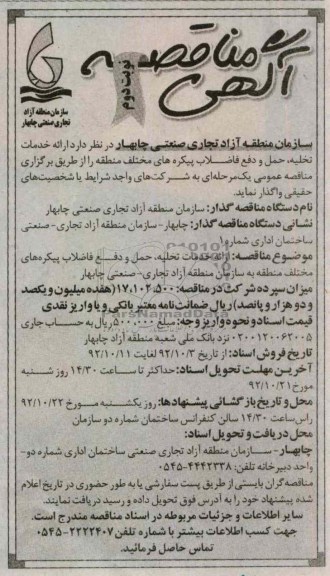 آگهی مناقصه
نوبت دوم
سازمان منطقه آزاد
تجاری صنعتی چابهار
سازمان منطقه آزاد تجاری صنعتی چابهار در نظر دارد ارائه خدمات
تخلیه، حمل و دفع فاضلاب پیکره های مختلف منطقه را از طریق برگزاری
مناقصه عمومی یک مرحله‌ای به شرکت‌های واجد شرایط یا شخصیت‌های
حقیقی واگذار نماید.
نام دستگاه مناقصه گذار: سازمان منطقه آزاد تجاری صنعتی چابهار
نشانی دستگاه مناقصه گذار: چابهار-سازمان منطقه آزاد تجاری-صنعتی
ساختمان اداری شماره ۱
موضوع مناقصه: ارائه خدمات تخلیه، حمل و دفع فاضلاب پیکره‌های
مختلف منطقه به سازمان منطقه آزاد تجاری- صنعتی چابهار
میزان سپرده شرکت در مناقصه: ۱۷،۱۰۲،۵۰۰ (هفده میلیون و یکصد
و دو هزار و پانصد) ریال ضمانت‌نامه معتبر بانکی و یا واریز نقدی
قیمت اسناد و نحوه واریز وجه: مبلغ ۵۰۰،۰۰۰ ریال به حساب جاری
۰۲۰۰۱۲۰۰۶۲۰۰۵ نزد بانک ملی شعبه منطقه آزاد چابهار
تاریخ فروش اسناد: از تاریخ ۹۲/۱۰/۳ لغایت ۹۲/۱۰/۱۱
آخرین مهلت تحویل اسناد: حداکثر تا ساعت ۱۴/۳۰ روز شنبه
مورخ ۹۲/۱۰/۲۱
محل و تاریخ بازگشائی پیشنهادها: روز یکشنبه مورخ ۹۲/۱۰/۲۲
راس ساعت ۱۴/۳۰ سالن کنفرانس ساختمان شماره دو سازمان
محل دریافت و تحویل اسناد:
چابهار - سازمان منطقه آزاد تجاری صنعتی ساختمان اداری شماره دو-
واحد دبیرخانه تلفن: ۴۴۴۲۳۳۸-۰۵۴۵
مناقصه‌گران بایستی از طریق پست سفارشی یا به طور حضوری در تاریخ اعلام
شده پیشنهاد خود را به آدرس فوق تحویل داده و رسید دریافت نمایند.
سایر اطلاعات و جزئیات مربوطه در اسناد مناقصه مندرج است.
جهت کسب اطلاعات بیشتر با شماره تلفن ۲۲۲۲۴۰۷-۰۵۴۵
تماس حاصل فرمائید.